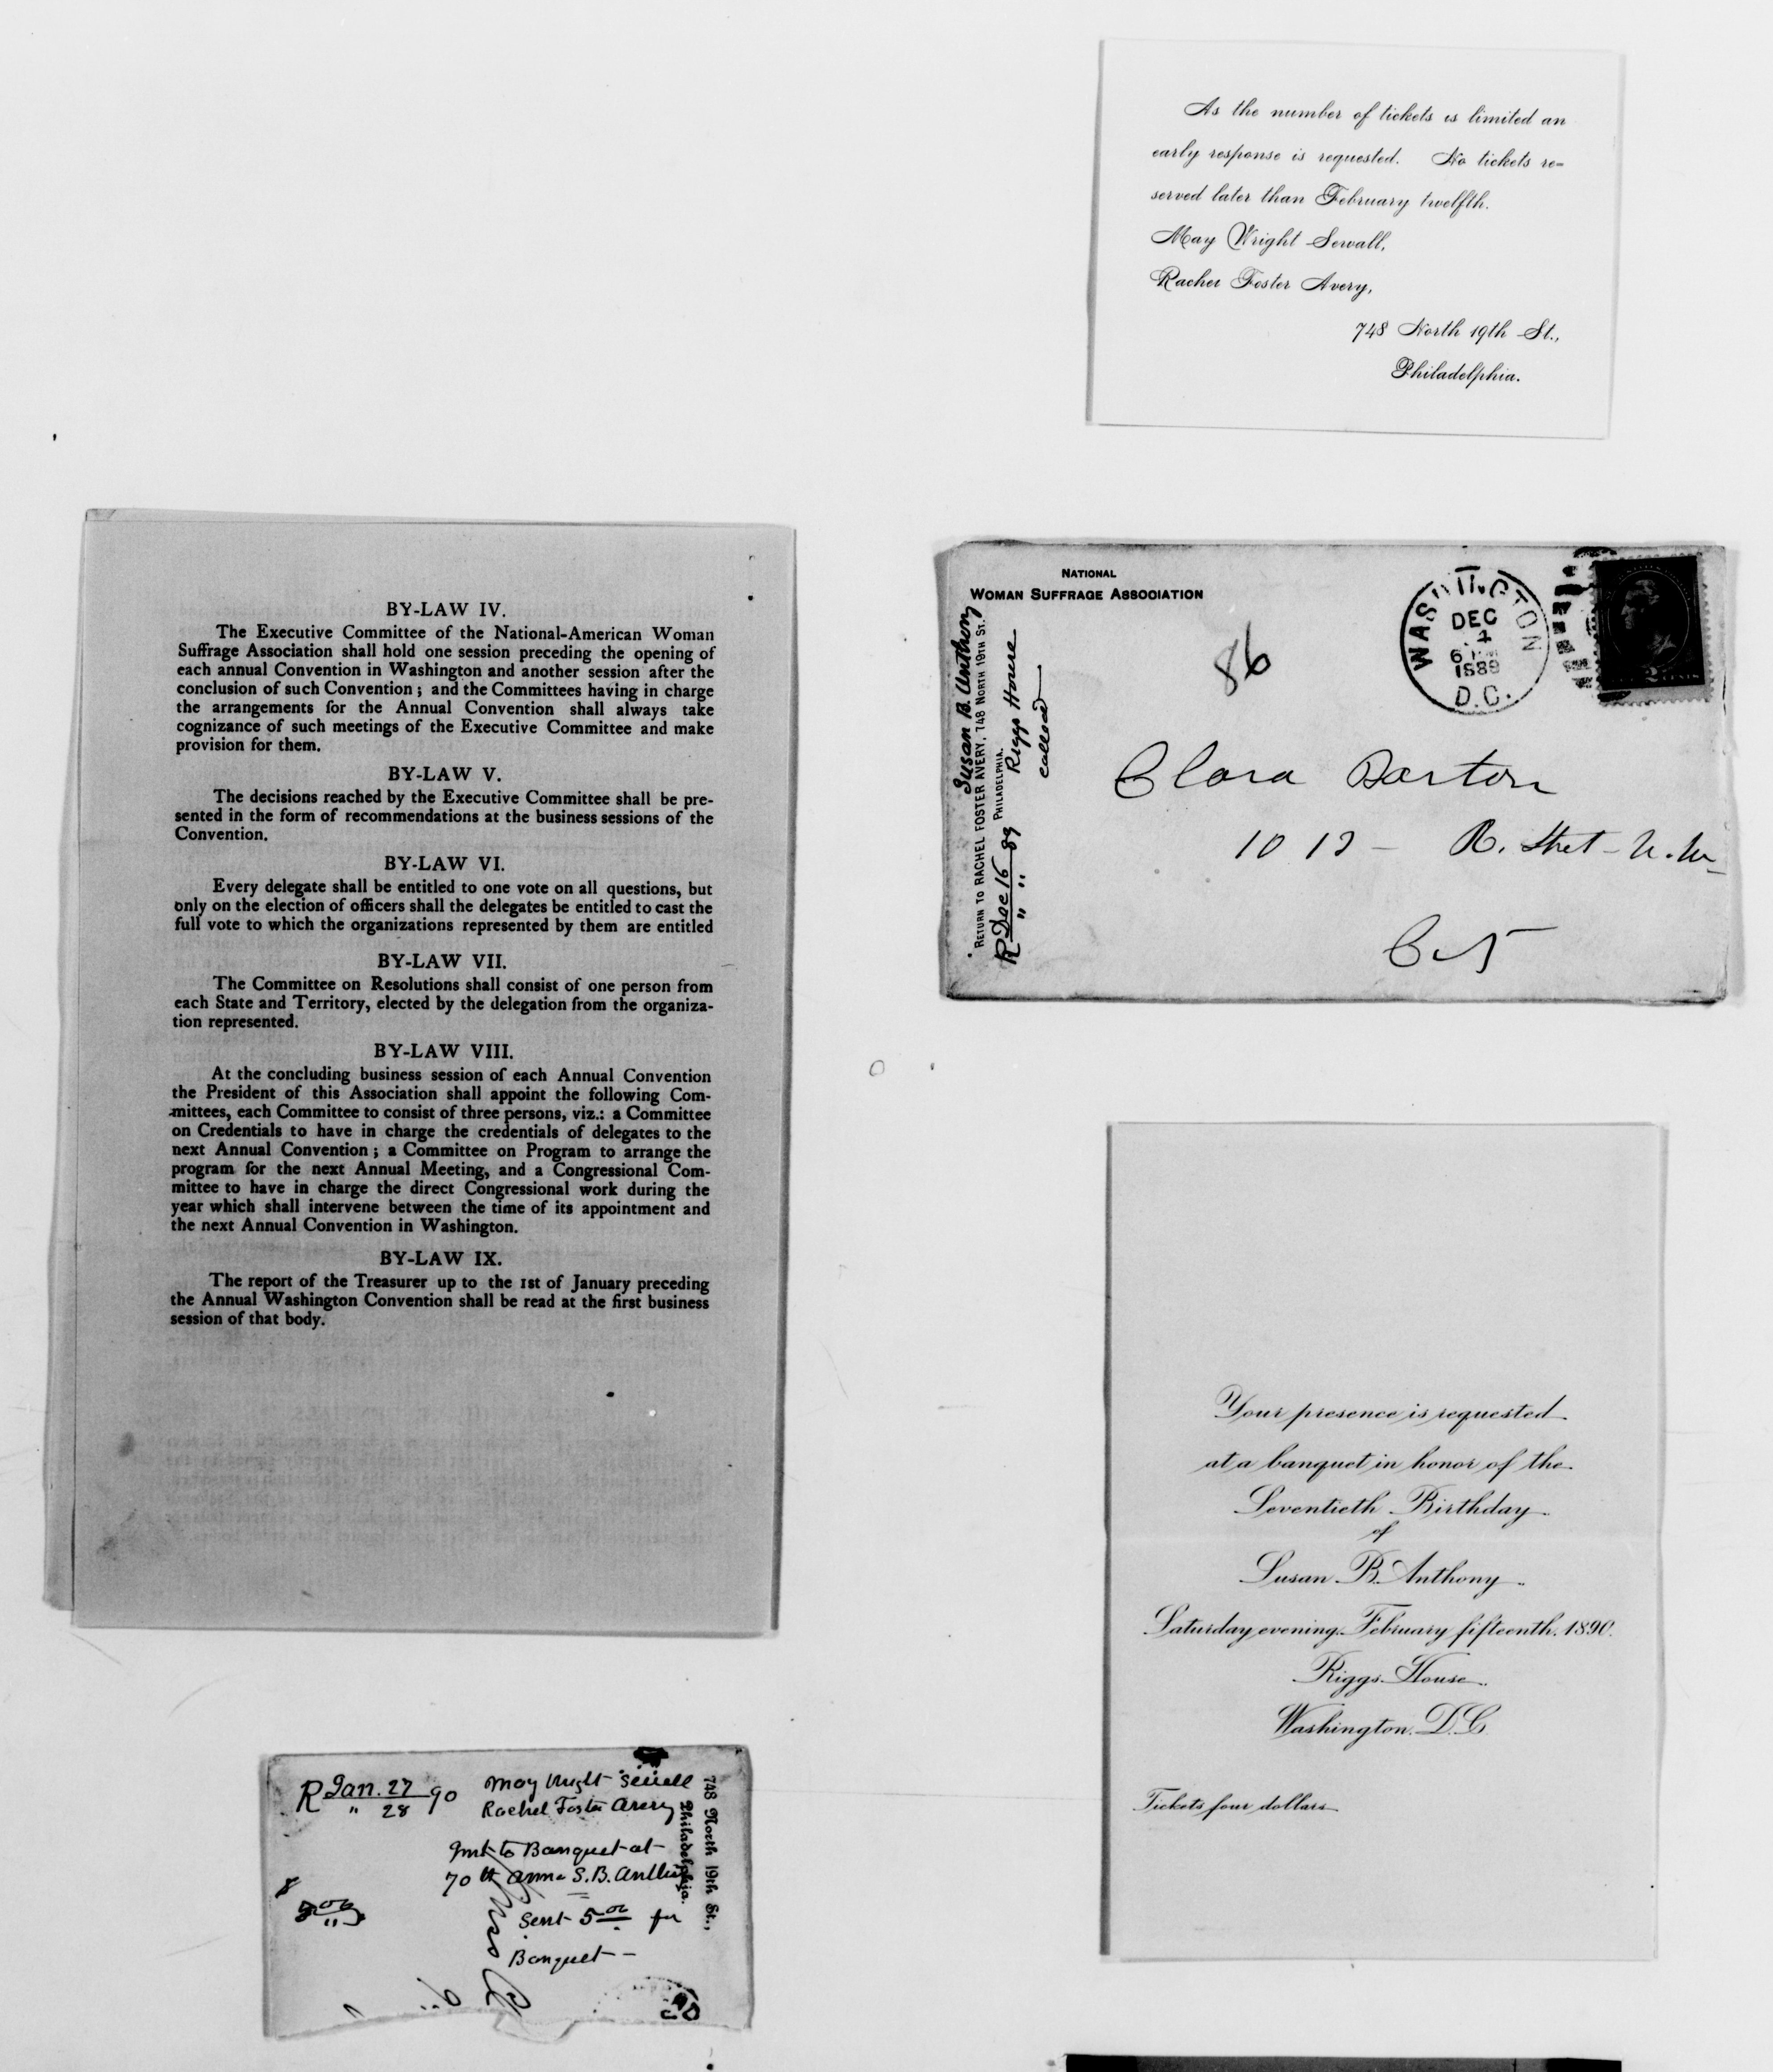 As the number of tickets is limited an
early response is requested. No tickets re-
served later than February twelfth.
May Wright Sewall,
Rachel Foster Avery,
748 North 19th St.,
Philadelphia.
BY-LAW IV.
The Executive Committee of the National-American Woman
Suffrage Association shall hold one session preceding the opening of
each annual Convention in Washington and another session after the
conclusion of such Convention; and the Committees having in charge
the arrangements for the Annual Convention shall always take
cognizance of such meetings of the Executive Committee and make
provision for them.
BY-LAW V.
The decisions reached by the Executive Committee shall be pre-
sented in the form of recommendations at the business sessions of the
Convention.
BY-LAW VI.
Every delegate shall be entitled to one vote on all questions, but
only on the election of officers shall the delegates be entitled to cast the
full vote to which the organizations represented by them are entitled
BY-LAW VII.
The Committee on Resolutions shall consist of one person from
each State and Territory, elected by the delegation from the organiza-
tion represented.
BY-LAW VIII.
At the concluding business session of each Annual Convention
the President of this Association shall appoint the following Com-
mittees, each Committee to consist of three persons, viz.: a Committee
on Credentials to have in charge the credentials of delegates to the
next Annual Convention; a Committee on Program to arrange the
program for the next Annual Meeting, and a Congressional Com-
mittee to have in charge the direct Congressional work during the
year which shall intervene between the time of its appointment and
the next Annual Convention in Washington.
BY-LAW IX.
The report of the Treasurer up to the 1st of January preceding
the Annual Washington Convention shall be read at the first business
session of that body.
NATIONAL
WOMAN SUFFRAGE ASSOCIATION
Susan B. Anthony
RETURN TO RACHEL FOSTER AVERY, 748 NORTH 19TH ST.,
PHILADELPHIA.
R Dec 16 89 Riggs House
" "
called
86
WASHINGTON
DEC
4
6 PM
1889
D.C.
Clara Barton
1012 - R. Street - N.W
City
Your presence is requested
at a banquet in honor of the
Seventieth Birthday
of
Susan B. Anthony
Saturday evening February fifteenth. 1890.
Riggs House
Washington. D.C.
Tickets four dollars
R Jan. 27 90
" 28
May Wright Sewell
Rachel Foster Avery
748 North 19th St.,
Philadelphia.
Banquet at
70th Anna S.B. Anthony
Sent 5 00 for
Banquet -